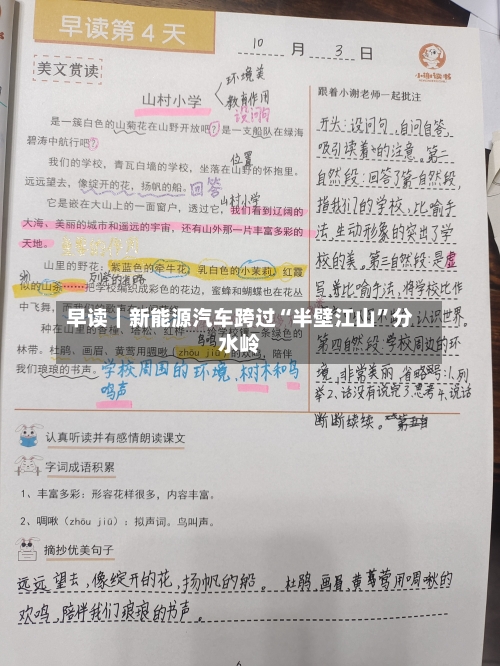 早读第 4 天
10 月 3 日
小谢读书
美文赏读
山村小学
环境美
教育作用
设问句
是一簇白色的山菊花在山野开放吧？是一支船队在绿海
碧涛中航行吧？
位置
我们的学校，青瓦白墙的学校，坐落在山野的怀抱里。
远远望去，像绽开的花，扬帆的船。
回答
山村小学
它是嵌在大山上的一面窗户，透过它，我们看到辽阔的
大海、美丽的城市和遥远的宇宙，还有山外那一片丰富多彩的
天地。
山里的野花，紫蓝色的牵牛花，乳白色的小茉莉，红霞
似的山条……把学校编织成彩色的花边，蜜蜂和蝴蝶也在花丛
林带。杜鹃、画眉、黄莺用啁啾（zhōu jiū）的欢鸣，陪伴
我们琅琅的书声。
学校周围的环境,树木和鸟
鸣声
跟着小谢老师一起批注
开头：设问句，自问自答，
吸引读者的注意。第二
自然段：回答了第一自然段，
指我们的学校，比喻手
法，生动形象的突出了学
校的美。第三自然段：是虚
写
第四自然段：学校周边的环
境，非常美丽，省略号：1.列
举2.话没有说完了思考4.说话
断断续续。
早读丨新能源汽车跨过“半壁江山”分
水岭
认真听读并有感情朗读课文
字词成语积累
1、丰富多彩：形容花样很多，内容丰富。
2、啁啾（zhōu jiū）：拟声词。鸟叫声。
摘抄优美句子
远远望去，像绽开的花，扬帆的船。 杜鹃，画眉，黄莺用啁啾的
欢鸣，陪伴我们琅琅的书声。